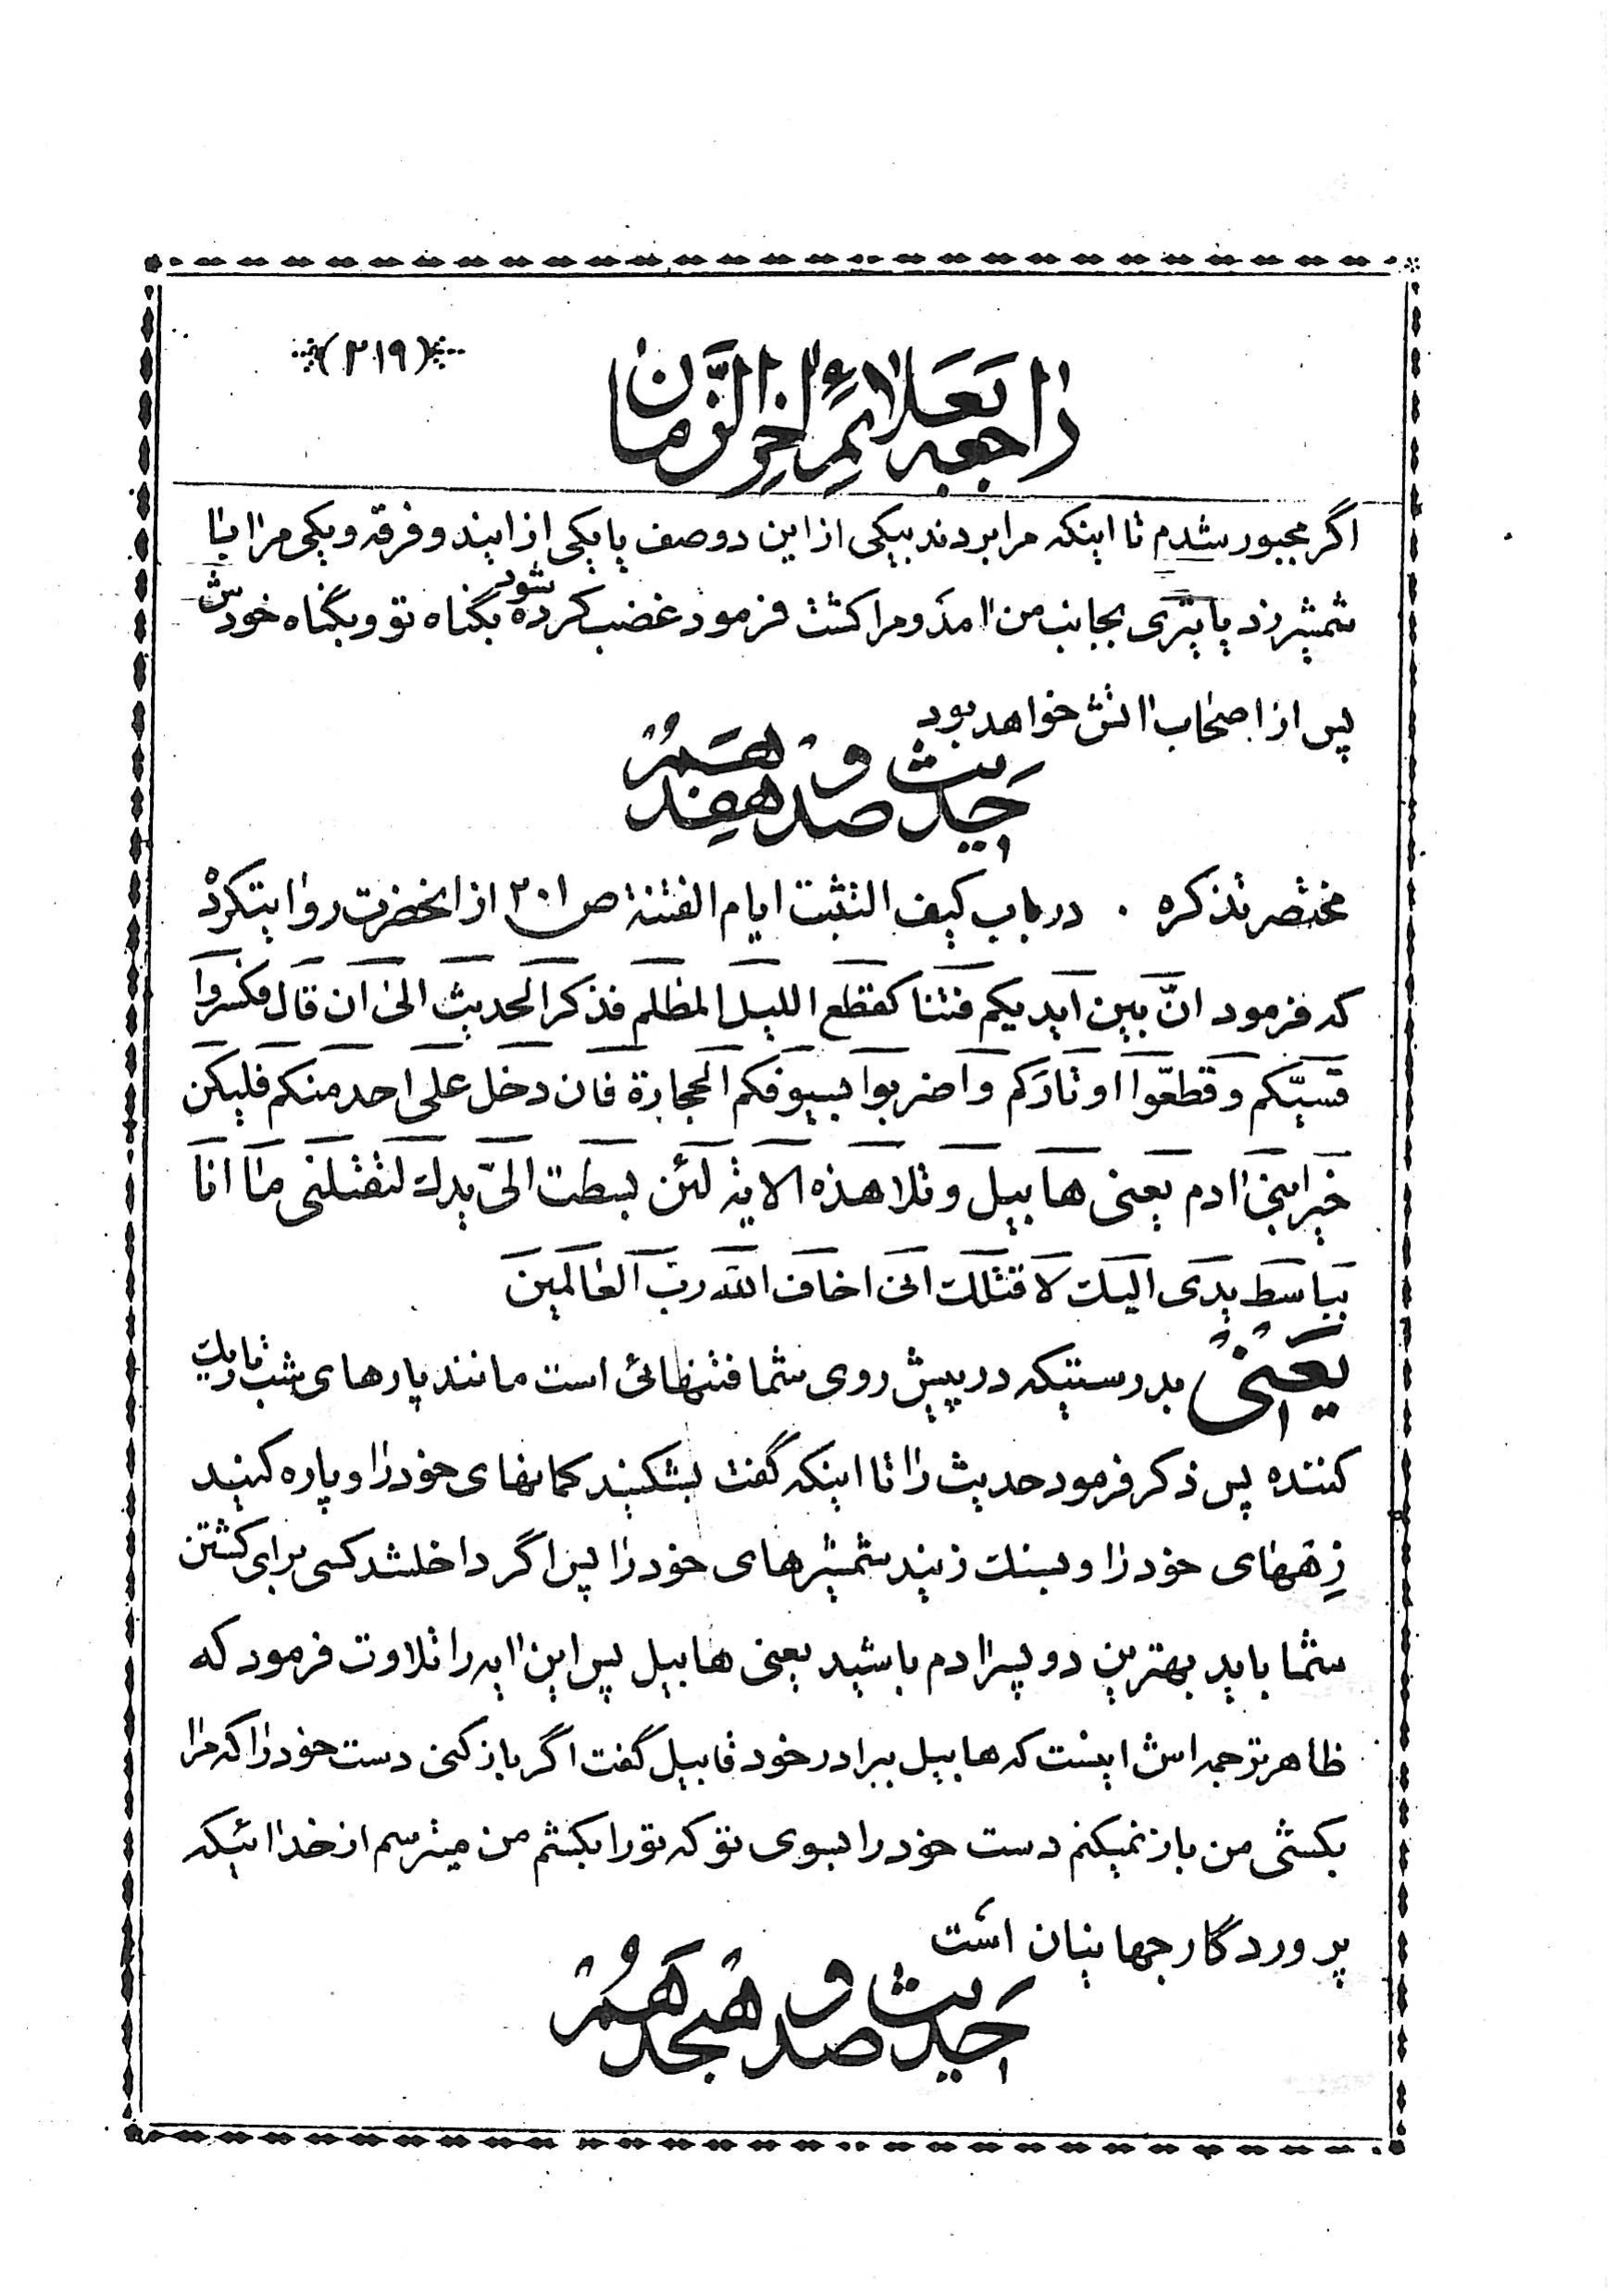 (۲۱۹)
راجعه بعلائم اخر الزمان
اگر مجبور شدم تا اینکه مرا بردند بیکی از این دو صف یا یکی از ایند و فرقه و یکی مرا با
شمشیر زد یا تیری بجانب من امد و مرا کشت فرمود غضب کرده شود بگناه تو و بگناه خودش
پس از اصحاب اتش خواهد بود
حدیث صد و هفدهم
مختصر تذکره . در باب کیف التثبت ایام الفتنة ص ۲۰۱ از انحضرت روایتکرد
که فرمود انّ بین ایدیکم فتنا کقطع اللیل المظلم فذکر الحدیث الی ان قال فکسروا
قسیّکم و قطعّوا اوتارکم و اضربوا بسیوفکم الحجارة فان دخل علی احد منکم فلیکن
خیر ابنی ادم یعنی هابیل و تلا هذه الایة لئن بسطت الیّ یدك لتقتلنی ما انا
بباسط یدی الیك لاقتلك انی اخاف الله ربّ العالمین
یعنی بدرستیکه در پیش روی شما فتنهائی است مانند پارهای شب تاریك
کننده پس ذکر فرمود حدیث را تا اینکه گفت بشکنید کمانهای خود را و پاره کنید
زِههای خود را و بسنك زنید شمشیرهای خود را پس اگر داخلشد کسی برای کشتن
شما باید بهترین دو پسر ادم باشید یعنی هابیل پس این ایه را تلاوت فرمود که
ظاهر ترجمه اش اینست که هابیل ببرادر خود قابیل گفت اگر باز کنی دست خود را که مرا
بکشی من باز نمیکنم دست خود را بسوی تو که تو را بکشم من میترسم از خدائیکه
پروردگار جهانیان است
حدیث صد و هجدهم